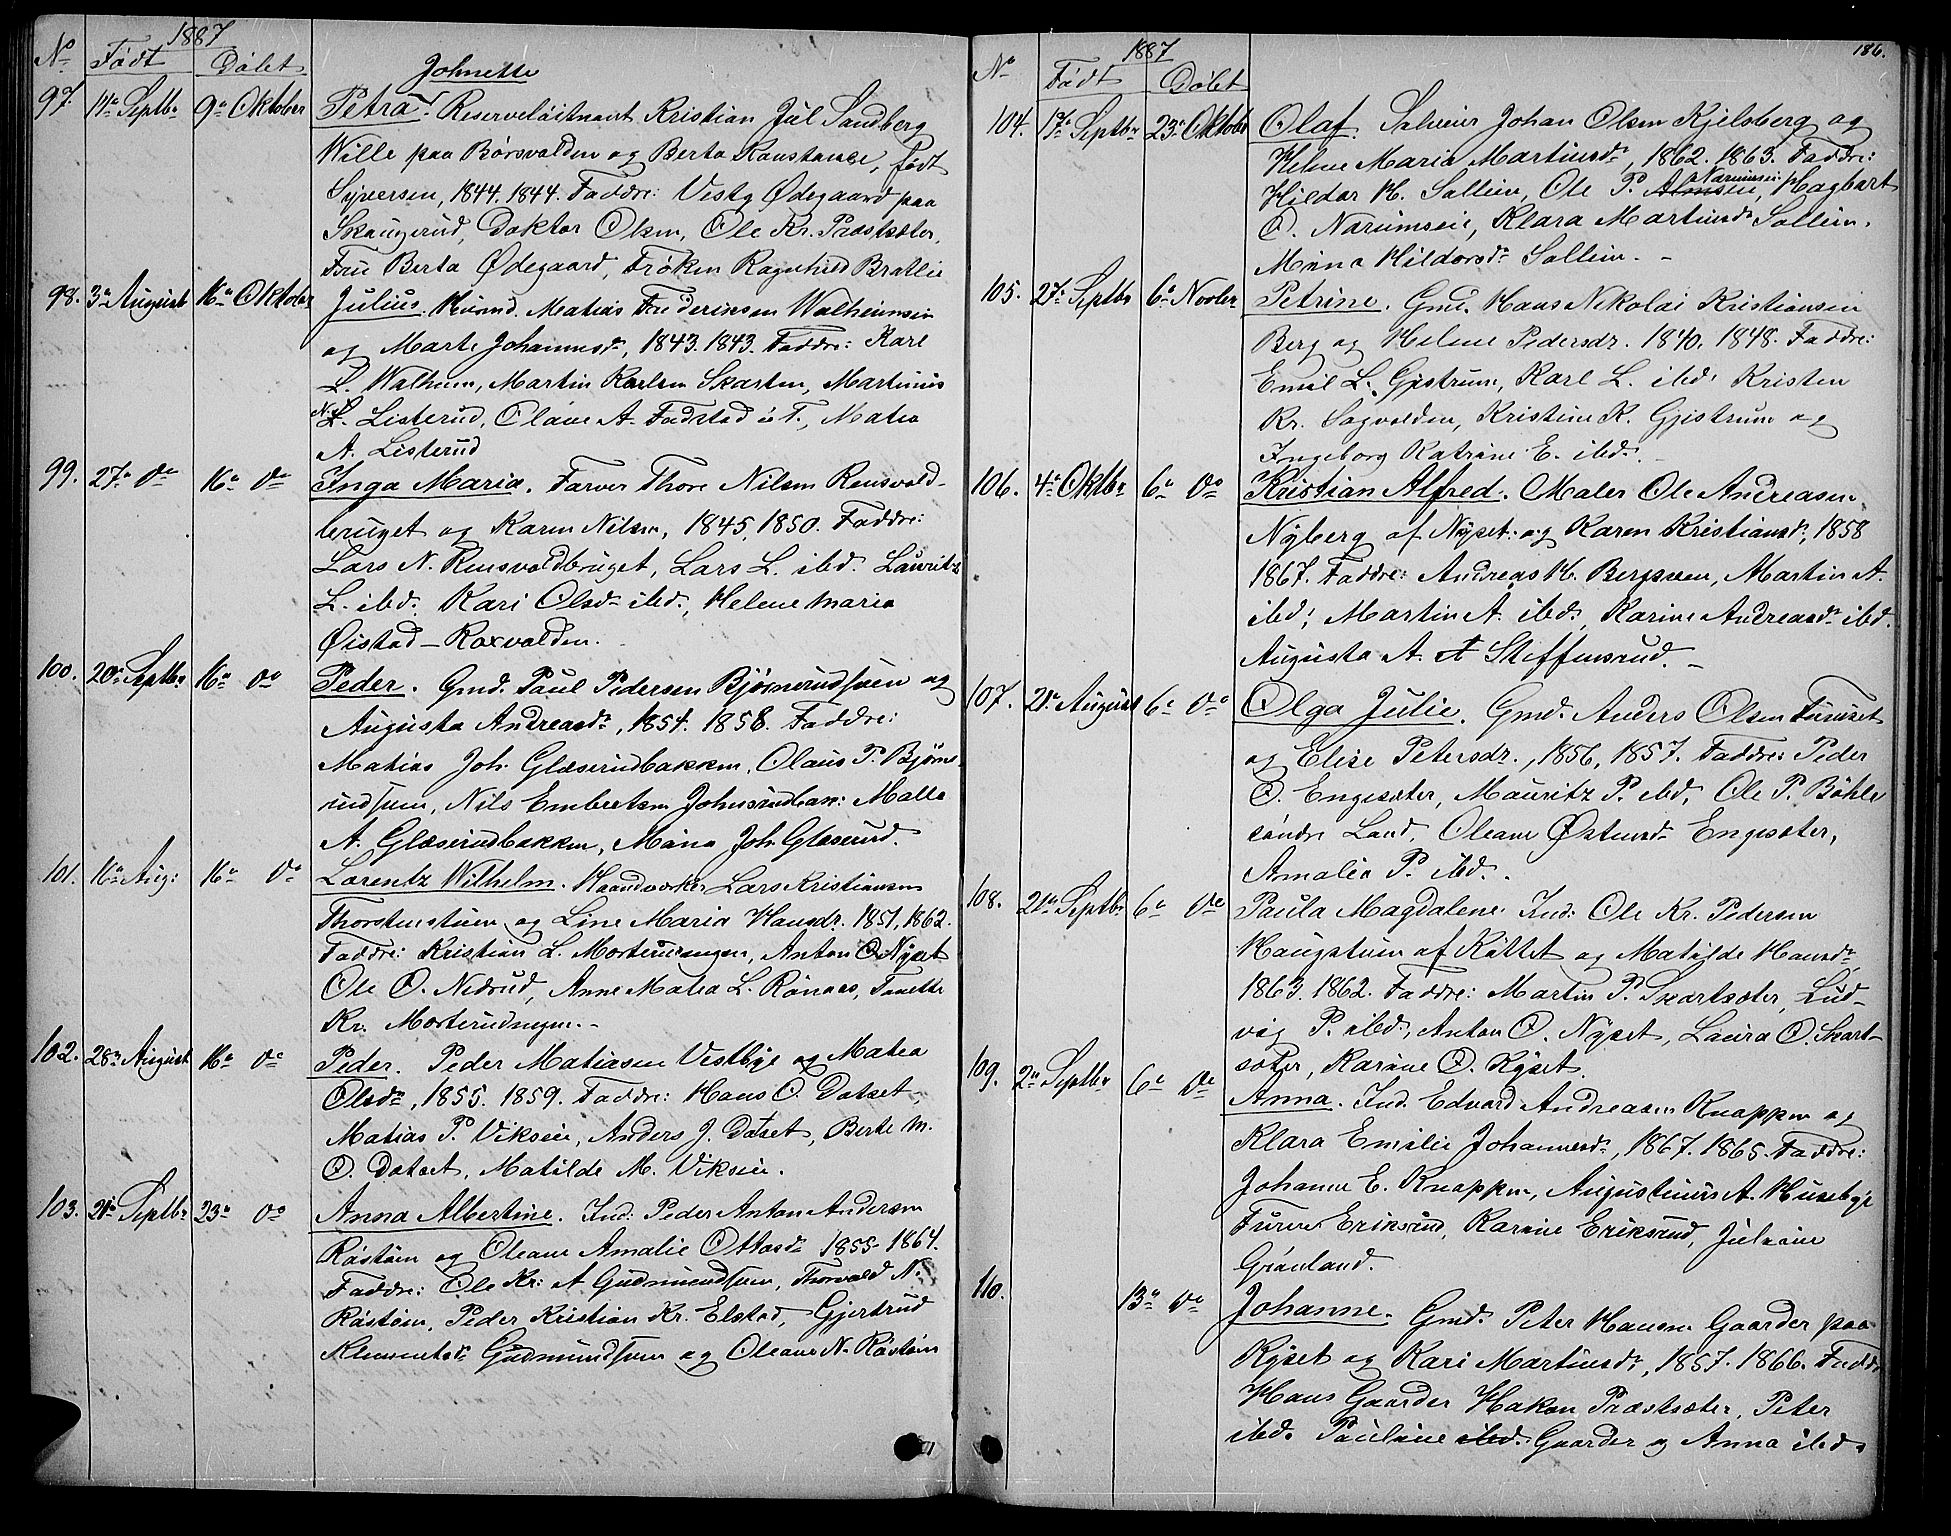 1887
No Født Døbt
Johnette
97. 14de Septbr 9de Oktober Petra. Reserveløitnant Kristian Jul Sandberg
Wille paa Børsvolden og Berta Konstanse, født
Syversen, 1844. 1844. Faddre: Vestg Ødegaard paa
Skaugerud, Doktor Olsen, Ole Kr. Præstsæter,
Fru Berta Ødegaard, Frøken Ragnhild Bratlie
98. 3de August 16de Oktober Julius. Husmd. Matias Frederiksen Walheimsein
og Marte Johannesdr, 1843. 1843. Faddre: Karl
L. Walheim, Martin Karlsen Skarten, Martinius
N. L. Listerud, Olaine A. Fadstad i T., Matea
A. Listerud
99. 27de do 16de do Inga Maria. Farver Thore Nilsen Rensvold-
bruget og Karen Nilsen, 1845, 1850. Faddre:
Lars N. Rensvoldbruget, Lars L. ibd. Lauritz
L. ibd. Kari Olsdr ibd., Helene Maria
Øistad – Roxvolden.
100. 20de Septbr 16de do Peder. Gmd. Paul Pedersen Bjørnerudsveen og
Augusta Andreasdr, 1854. 1858. Faddre:
Matias Joh. Glæserudbakken, Olaus P. Bjørne-
rudsveen, Nils Embretsen Johnsrudban: Malla
A. Glæserudbakken, Mina Joh. Glæserud.
101. 16de Aug: 16de do Lorentz Wilhelm. Haandværker Lars Kristiansen
Thorstenstuen og Line Maria Hansdr. 1851, 1862.
Faddre: Kristian L. Morterudengen, Anton O. Nyset
Ole O. Nedrud, Anne Matea L. Rønaas, Tonette
Kr. Morterudengen. –
102. 28de August 16de do Peder. Peder Matiasen Vestbye og Matea
Olsdr, 1855. 1859. Faddre: Hans O. Dotset,
Matias P. Viksein, Anders J. Dotset, Berte M.
O. Dotset, Matilde M. Viksein.
103. 21de Septbr 23de do Anna Albertine. Ind: Peder Anton Andersen
Røstøen og Oleane Amalie Ottosdr 1855– 1864.
Faddre: Ole Kr: A Gudmundsveen, Thorvald N.
Røstøen, Peder Kristian Kr. Elstad, Gjertrud
Klemmetsdr Gudmundsveen og Oleane N. Røstøen
186.
1887
No Født Døbt
104. 17de Septbr 23de Oktober Olaf. Selveier Johan Olsen Kjelsberg og
Helene Maria Martinsdr, 1862. 1863. Faddre:
Hildor H. Sollein, Ole P. Almseie, Narumseie, Hagbart
O. Narumseie, Klara Martinsdr Sollein.
Mina Hildorsdr Sollein. –
105. 27de Septbr 6te Novbr Petrine. Gmd. Hans Nikolai Kristiansen
Berg og Helene Pedersdr. 1840. 1848. Faddre:
Emil L. Gjestrum, Karl L. ibd. Kristen
Kr. Sagvolden, Kristine K. Gjestrum og
Ingeborg Katrine E. ibd. –
106. 4de Oktbr 6te do Kristian Alfred. Maler Ole Andreasen
Nyberg af Nyset. og Karen Kristiansdr, 1858
1867. Faddre: Andreas H. Bergsveen, Martin A.
ibd; Martin A. ibd., Karine Andreasdr ibd.
Augusta A. A Steffensrud. –
107. 21de August 6te do Olga Julie. Gmd. Anders Olsen Furuset
og Elise Petersdr., 1856, 1857. Faddre: Peder
O. Engesæter, Mauritz P. ibd, Ole P. Bøhle
søndre Land, Oleane Østensdr Engesæter,
Amalia P. ibd..
108. 21de Septbr 6te do Paula Magdalene. Ind: Ole Kr. Pedersen
Haugstuen af Køttet og Matilde Hansdr
1863. 1862. Faddre: Martin P. Skartsæter, Lud-
vig P. ibd., Anton O. Nyset, Laura O. Skart-
sæter, Karine O. Kyset.
109. 2de Septbr 6te do Anna. Ind. Edvard Andreasen Knappen og
Klara Emilie Johannesdr, 1867. 1865. Faddre:
Johanne E. Knappen, Augustinus A. Husebye
Furene Eriksrud, Karine Eriksrud, Juliane
Grønland.
110. 13de do Johanne. Gmd. Peter Hansen Gaarder paa
Kyset og Kari Martinsdr, 1857. 1866. Faddr
Hans Gaarder Hakon Præstsæter, Peter
ibd. Pauline ibd. Gaarder og Anna ibd.